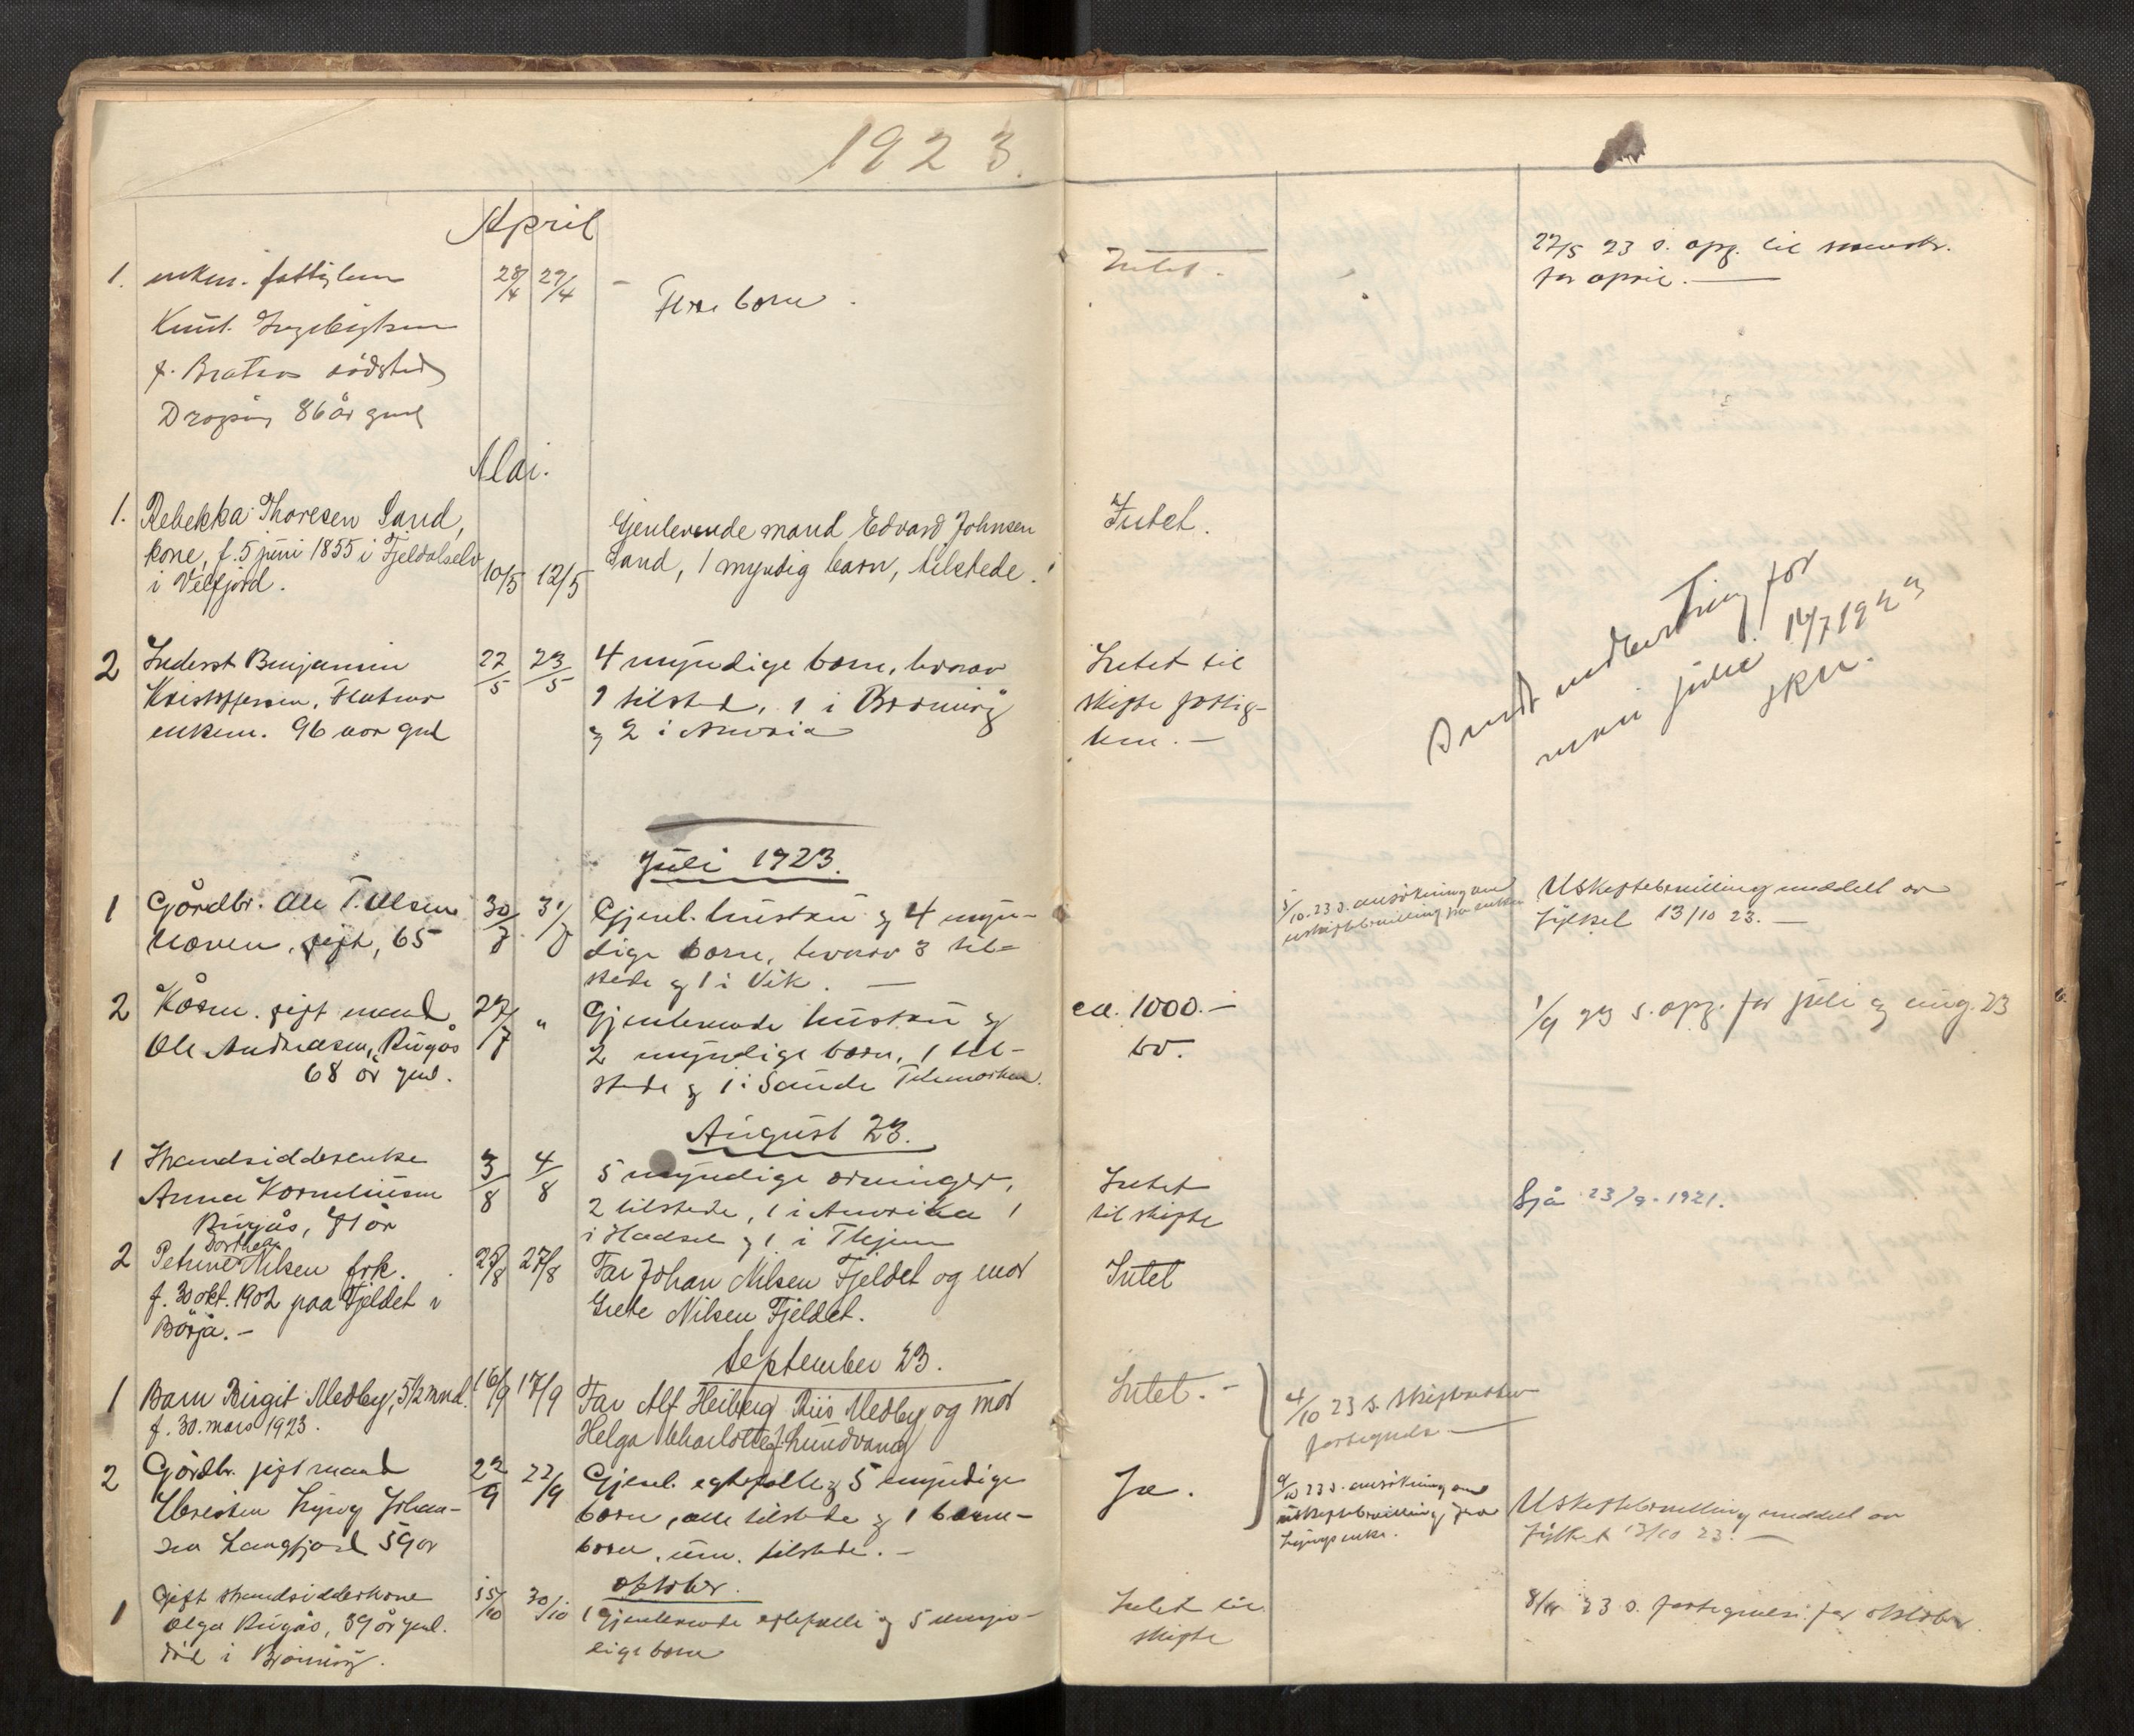 1923.
April
1. enkem. fattiglem 28/4 29/4 –
Knut Ingebrigtsen
f. Bratnes dødsted
86 år gml
Flere born.
Intet.
27/5 23 s. opg. til
for april. —
Mai.
1. Rebekka Thoresen Sand,
kone, f. 5 juni 1855 i
i Velfjord. 10/5 12/5
Gjenlevende mand Edvard Johnsen
Sand, 1 myndig barn, tilstede.
Intet.
2 Inderst Benjamin 22/5 23/5
Kristoffersen,
enkem. 96 aar gml
4 myndige born, hvorav
1 tilsted, 1 i Brønnøy
og 2 i Amerika
Intet til
skifte fattig-
lem. –
Sendt indberetning for
mai juni 14/7 1923
Juli 1923.
1 Gårdbr. Ole T. Olsen 30/7 31/7
gift, 65
Gjenl. hustru og 4 myn-
dige born, hvorav 3 til-
stede og 1 i Vik. —
5/10-23 s. ansökning om
uskiftebevilling fra enken
Uskiftebevilling meddelt av
fylket 13/10 23. —
2 Håsm. gift mand 27/7 "
Ole Andreasen, Bugås
68 år gml.
Gjenlevende hustru og
2 myndige born, 1 til-
stede og 1 i Sande Telemarken.
ca. 1000.–
1/9 23 s. opg. for juli og aug. 23
August 23.
1 Strandsidderenke 3/8 4/8
Anna Korneliusen
Bugås, 71 år
5 myndige arvinger,
2 tilstede, 1 i Amerika 1
i Hadsel og 1 i Tkjem
Intet
til skifte
Sjå 23/9-1921.
2 Petrine Dorthea Nilsen frk. 25/8 27/8
f. 30 okt. 1902 paa Fjeldet i
Börja. –
Far Johan Nilsen Fjeldet og mor
Grete Nilsen Fjeldet.
Intet
September 23.
1 Barn Birgit Medby, 5½ mnd. 16/9 17/9
f. 30. mars 1923.
Far Alf Heiberg Riis Medby og mor
Helga Charlotte f. Lundvang
Intet. –
4/10 23 s. skifteretten
fortegnelse —
2 Gårdbr. gift mand 22/9 22/9
Kristen Lyng Johan-
sen Langfjord 59 år
Gjenl. egtefelle og 5 myndige
born, alle tilstede og 1 barne-
barn, um. tilstede. –
Ja.
9/10 23 s. ansökning om
uskiftebevilling fra
Lyngs enke.
Uskiftebevilling meddelt av
fylket 13/10 23. —
oktober.
1 Gift strandsidderkone 15/10 30/10
Olga Bugås, 39 år gml.
död i Brönnöy.
1 gjenlevende egtefelle og 5 umyn-
dige born
Intet til
skifte
8/11 23 s. fortegnelse for oktober